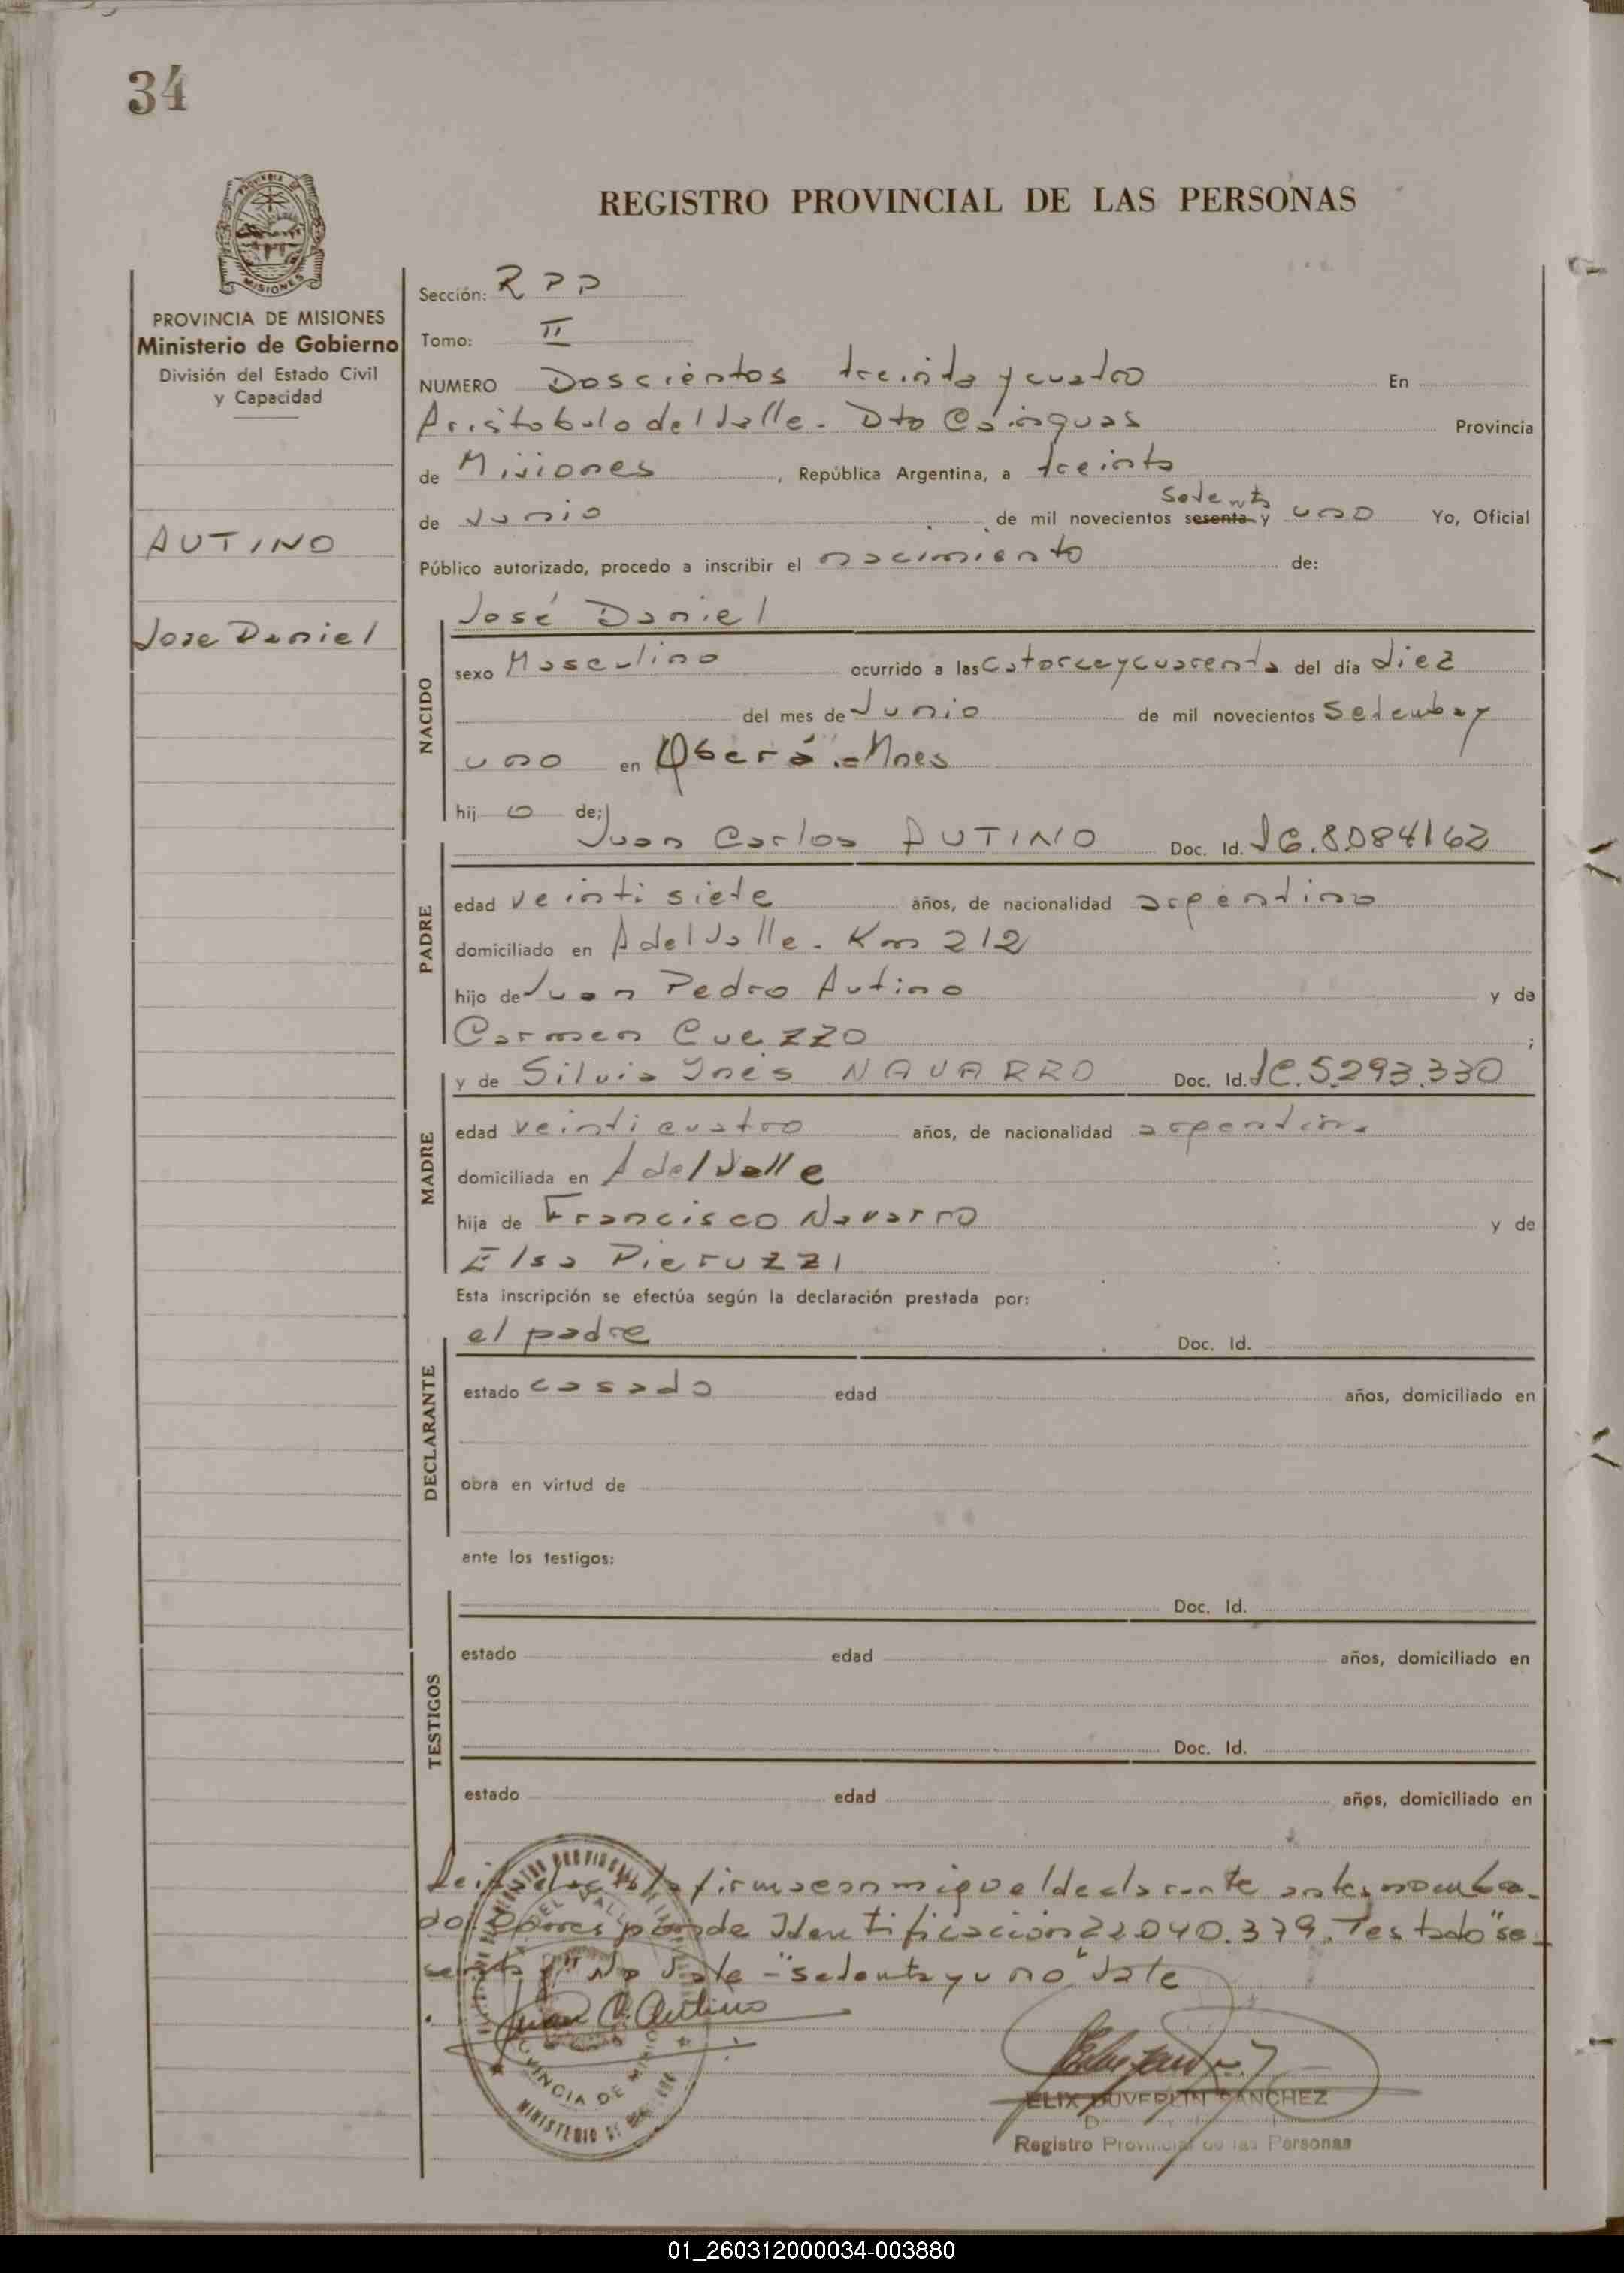 34
REGISTRO PROVINCIAL DE LAS PERSONAS
MISIONES
PROVINCIA DE MISIONES
Ministerio de Gobierno
División del Estado Civil
y Capacidad
AUTINO
Jose Daniel
Sección: RPP
Tomo: II
NUMERO Doscientos treinta y cuatro En
Aristobulo del Valle. Dto Cainguas Provincia
de Misiones, República Argentina, a treinta
setenta
de Junio de mil novecientos sesenta y uno Yo, Oficial
Público autorizado, procedo a inscribir el nacimiento de:
José Daniel
NACIDO
sexo Masculino ocurrido a las catorce y cuarenta del día diez
del mes de Junio de mil novecientos setenta y
uno en Oberá - Mnes
hijo de;
Juan Carlos AUTINO Doc. Id. 8.084162
PADRE
edad veinti siete años, de nacionalidad argentino
domiciliado en A del Valle. Km 212
hijo de Juan Pedro Autino y de
Carmen Cuezzo ;
y de Silvia Inés NAVARRO Doc. Id. LC. 5.293.330
MADRE
edad veinticuatro años, de nacionalidad argentina
domiciliada en A del Valle
hija de Francisco Navarro y de
Elsa Pieruzzi
Esta inscripción se efectúa según la declaración prestada por:
el padre Doc. Id.
DECLARANTE
estado casado edad años, domiciliado en
obra en virtud de
ante los testigos:
TESTIGOS
Doc. Id.
estado edad años, domiciliado en
Doc. Id.
estado edad años, domiciliado en
Leida el acta la firma conmigo el declarante antes nombra-
do. Corresponde Identificación 22.040.379. Testado "se-
senta y" No Vale - "setenta y uno" Vale
Juan C. Autino
ELIX DUVERLIN SANCHEZ
Registro Provincial de las Personas
PROVINCIA DE MISIONES
MINISTERIO DE
01_260312000034-003880